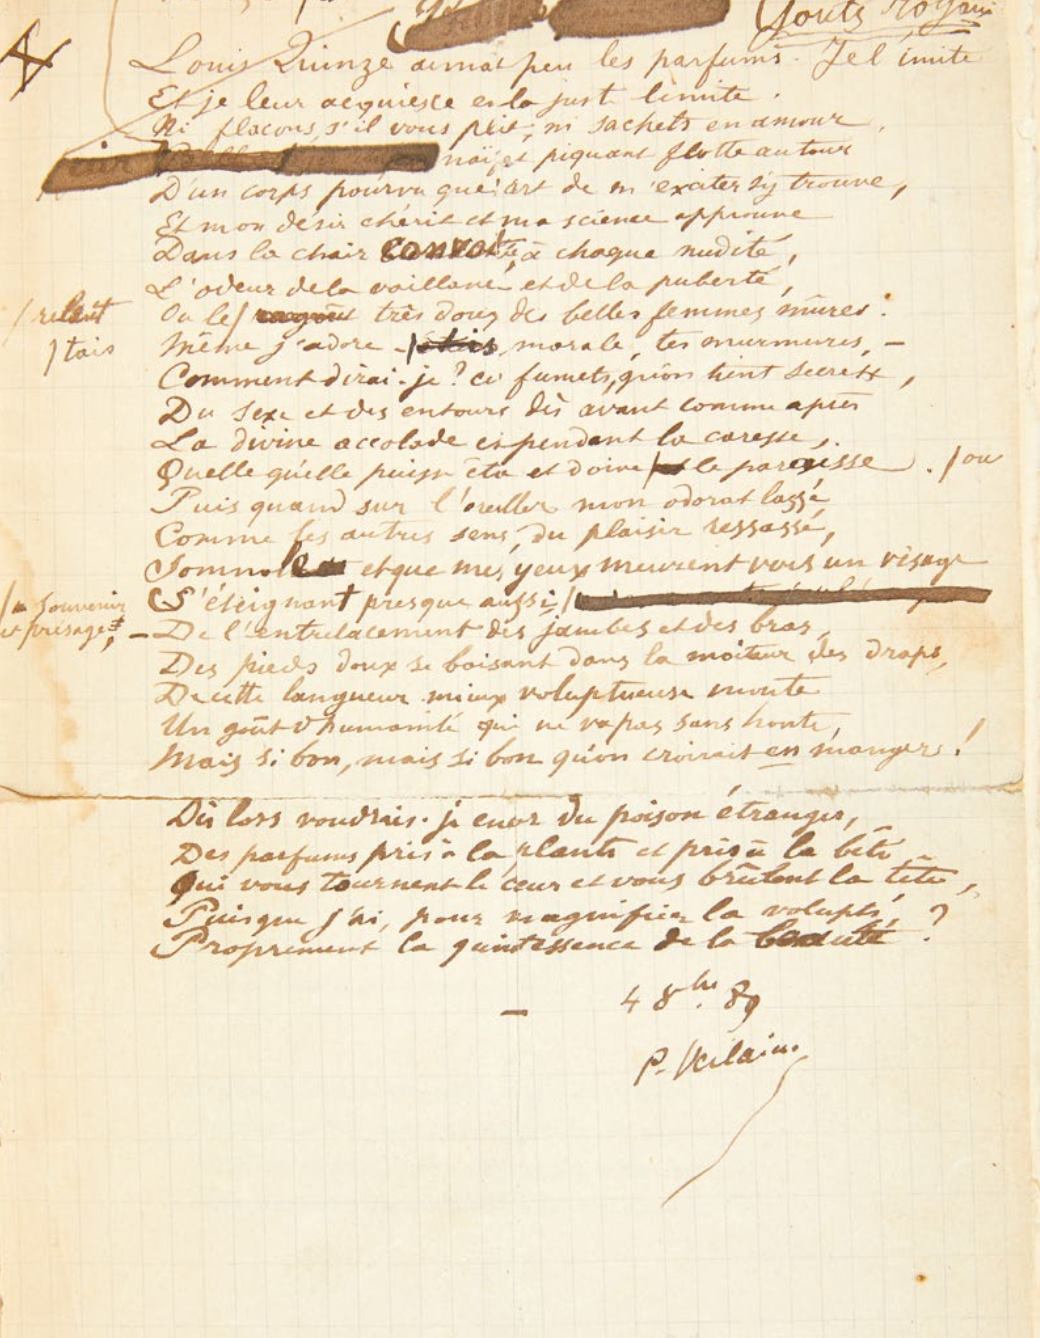 Goûts Royaux
Louis Quinze aimait peu les parfums. Je l'imite
Et je leur acquiesce en la juste limite.
Ni flacons, s'il vous plaît, ni sachets en amour.
naïf et piquant flotte autour
D'un corps pourvu que l'art de m'exciter s'y trouve,
Et mon désir chérit et ma science approuve
Dans la chair convoitée, à chaque nudité,
L'odeur de la vaillance et de la puberté,
/ relent
Ou le / ragoût très doux des belles femmes mûres.
/ tais
Même j'adore - / morale, tes murmures, -
Comment dirai-je? ces fumets, qu'on tient secrets,
Du sexe et des entours dès avant comme après
La divine accolade et pendant la caresse,
Quelle qu'elle puisse être et doive / le paraisse. / ou
Puis quand sur l'oreiller mon odorat lassé
Comme les autres sens, du plaisir ressassé,
Somnole et que mes yeux meurent vers un visage
S'éteignant presque aussi, /
/ - souvenir
et présage,
- De l'entrelacement des jambes et des bras,
Des pieds doux se baisant dans la moiteur des draps,
De cette langueur mieux voluptueuse monte
Un goût d'humanité qui ne va pas sans honte,
Mais si bon, mais si bon qu'on croirait en manger !
Dès lors voudrais-je encor du poison étranger,
Des parfums pris à la plante et pris à la bête
Qui vous tournent le cœur et vous brûlent la tête,
Puisque j'ai, pour magnifier la volupté,
Proprement la quintessence de la beauté ?
4 8bre 89
P. Verlaine